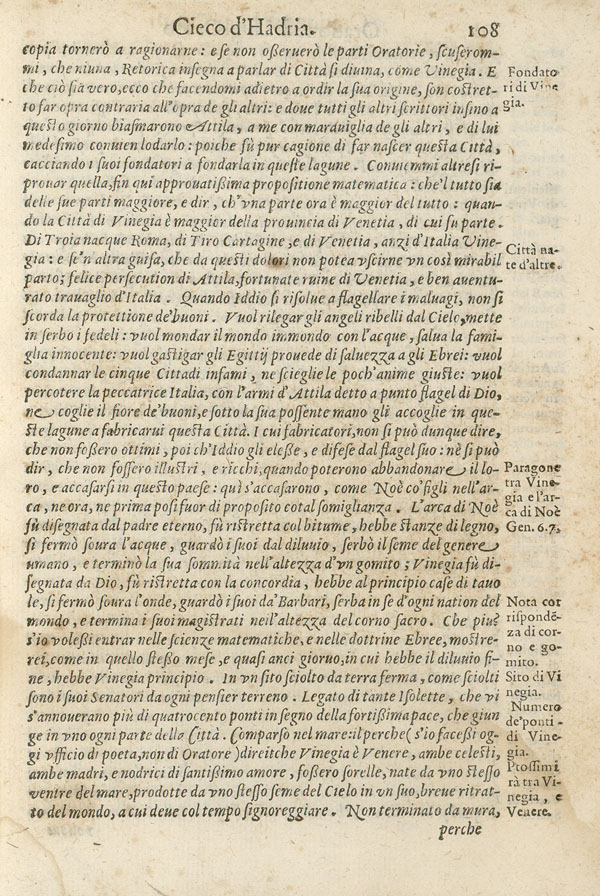 Cieco d'Hadria. 108
copia tornerò a ragionarne: e se non osseruerò le parti Oratorie, scuserom-
mi, che niuna, Retorica insegna a parlar di Città si diuina, come Vinegia. E
che ciò sia vero, ecco che facendomi adietro a ordir la sua origine, son costret-
to far opra contraria all'opra de gli altri: e doue tutti gli altri scrittori insino a
questo giorno biasmarono Attila, a me con marauiglia de gli altri, e di lui
medesimo conuien lodarlo: poiche fù pur cagione di far nascer questa Città,
cacciando i suoi fondatori a fondarla in queste lagune. Conuiemmi altresi ri-
prouar quella, fin qui approuatissima propositione matematica: che'l tutto sia
delle sue parti maggiore, e dir, ch'vna parte ora è maggior del tutto: quan-
do la Città di Vinegia è maggior della prouincia di Venetia, di cui fu parte.
Di Troia nacque Roma, di Tiro Cartagine, e di Venetia, anzi d'Italia Vine-
gia: e se'n altra guisa, che da questi dolori non potea vscirne vn così mirabil
parto; felice persecution di Attila, fortunate ruine di Venetia, e ben auentu-
rato trauaglio d'Italia. Quando Iddio si risolue a flagellare i maluagi, non si
scorda la protettione de'buoni. Vuol rilegar gli angeli ribelli dal Cielo, mette
in serbo i fedeli: vuol mondar il mondo immondo con l'acque, salua la fami-
glia innocente: vuol gastigar gli Egittij prouede di saluezza a gli Ebrei: vuol
condannar le cinque Cittadi infami, ne scieglie le poch'anime giuste: vuol
percotere la peccatrice Italia, con l'armi d'Attila detto a punto flagel di Dio,
ne coglie il fiore de'buoni, e sotto la sua possente mano gli accoglie in que-
ste lagune a fabricarui questa Città. I cui fabricatori, non si può dunque dire,
che non fossero ottimi, poi ch'Iddio gli elesse, e difese dal flagel suo: nè si può
dir, che non fossero illustri, e ricchi, quando poterono abbandonare il lo-
ro, e accasarsi in questo paese: quì s'accasarono, come Noè co'figli nell'ar-
ca, ne ora, ne prima posi fuor di proposito cotal somiglianza. L'arca di Noè
fù disegnata dal padre eterno, fù ristretta col bitume, hebbe stanze di legno,
si fermò soura l'acque, guardò i suoi dal diluuio, serbò il seme del genere
umano, e terminò la sua sommità nell'altezza d'vn gomito; Vinegia fù di-
segnata da Dio, fù ristretta con la concordia, hebbe al principio case di tauo
le, si fermò soura l'onde, guardò i suoi da'Barbari, serba in se d'ogni nation del
mondo, e termina i suoi magistrati nell'altezza del corno sacro. Che più?
s'io volessi entrar nelle scienze matematiche, e nelle dottrine Ebree, mostre-
rei, come in quello stesso mese, e quasi anci giorno, in cui hebbe il diluuio fi-
ne, hebbe Vinegia principio. In vn sito sciolto da terra ferma, come sciolti
sono i suoi Senatori da ogni pensier terreno. Legato di tante Isolette, che vi
s'annouerano più di quatrocento ponti in segno della fortissima pace, che giun
ge in vno ogni parte della Città. Comparso nel mare: il perche (s'io facessi og-
gi vfficio di poeta, non di Oratore) direi che Vinegia è Venere, ambe celesti,
ambe madri, e nodrici di santissimo amore, fossero sorelle, nate da vno stesso
ventre del mare, prodotte da vno stesso seme del Cielo in vn suo, breue ritrat-
to del mondo, a cui deue col tempo signoreggiare. Non terminato da mura,
perche
Fondato
ri di Vine
gia.
Città na-
te d'altre.
Paragone
tra Vine-
gia e l'ar-
ca di Noè
Gen. 6.7.
Nota cor
rispondē-
za di cor-
no e go-
mito.
Sito di Vi
negia.
Numero
de'ponti-
di Vine-
gia.
Prossimi
tà tra Vi-
negia, e
Venere.